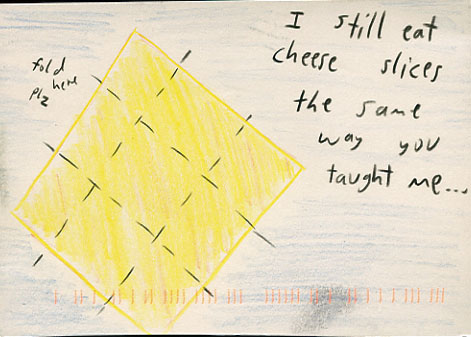 fold
here
plz
I still eat
cheese slices
the same
way you
taught me...